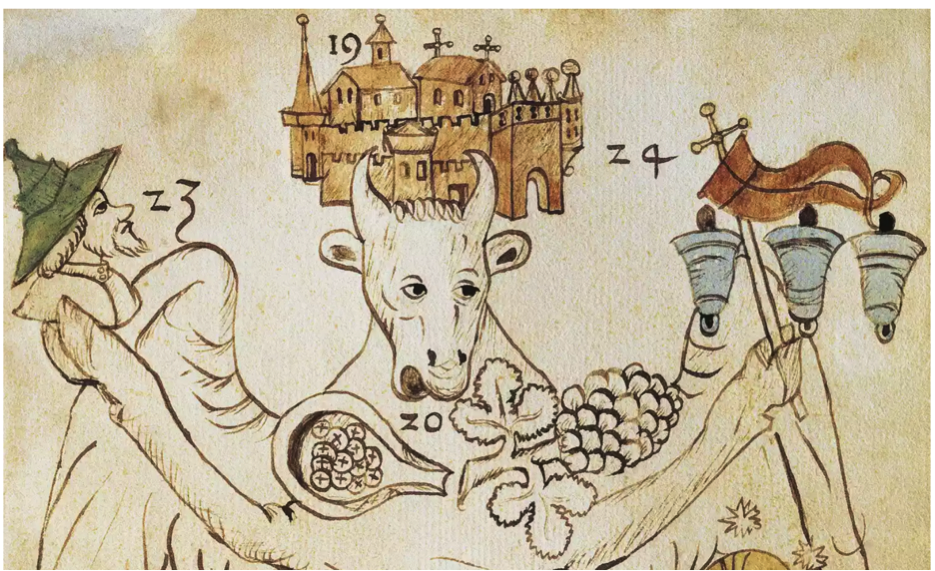 19
24
23
20